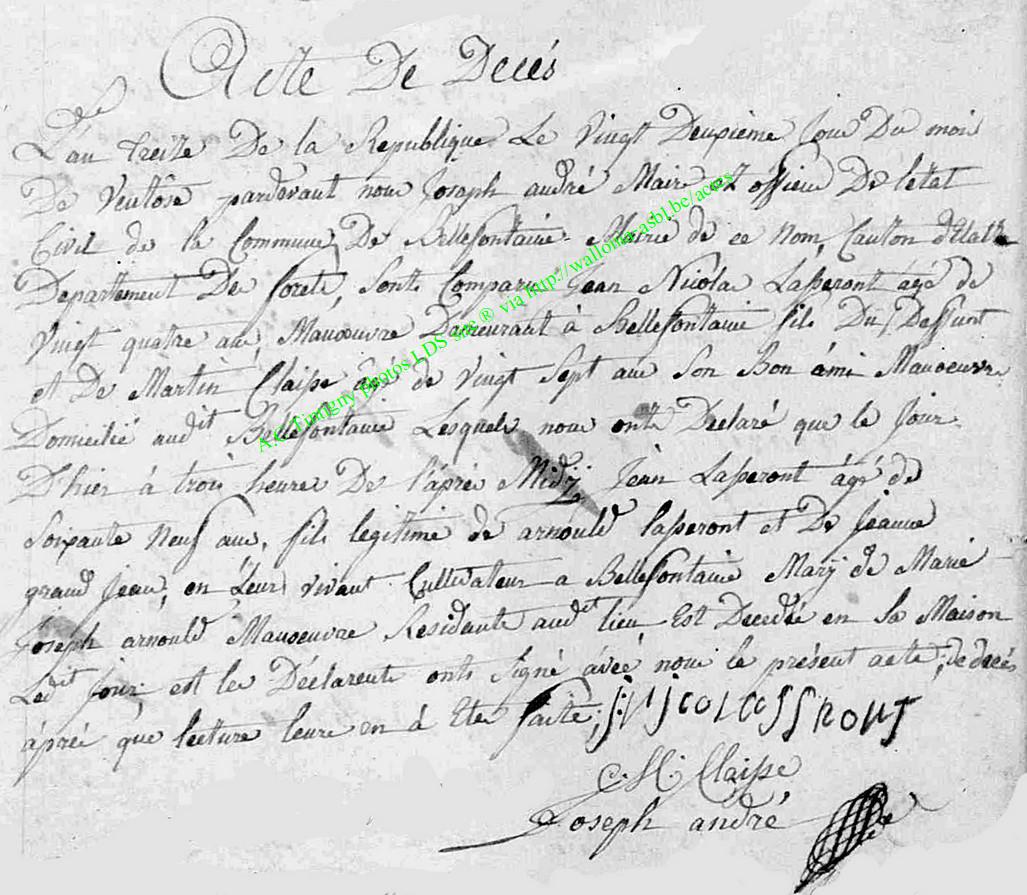 Acte De Decés
L'an treize De la Republique Le vingt Deuxieme Jour Du mois
De Ventôse pardevant nous Joseph andré Maire et officier De l'etat
Civil de la Commune De Bellefontaine Mairie de ce Nom, Canton d'Etalle
Departement Des forets, sont Comparu Jean Nicolas Lafseront agé de
vingt quatre ans, Manoeuvre Demeurant à Bellefontaine fils Du Deffunt
et De Martin Claisse agé de vingt Sept ans Son Bon ámi Manoeuvre
Domicilié audit Bellefontaine Lesquels nous onts Declaré que le Jour
D'hier à trois heures De l'áprés Midy Jean Lafseront ágé de
Soixante Neuf ans, fils legitime de arnould lafseront et De Jeanne
grand Jean, en Leurs vivant Cultivateurs a Bellefontaine Mary de Marie
Joseph arnould Manoeuvre Residante audit lieu Est Decedée en Sa Maison
Ledit Jour; est les Déclarents onts Signé ávec nous le présent acte; de decés
áprés que lecture leure en á Eté faite;
C. H. Claisse
Joseph andré
A.G. Tintigny photos LDS sarc ® via http://wallonia-asbl.be/actes